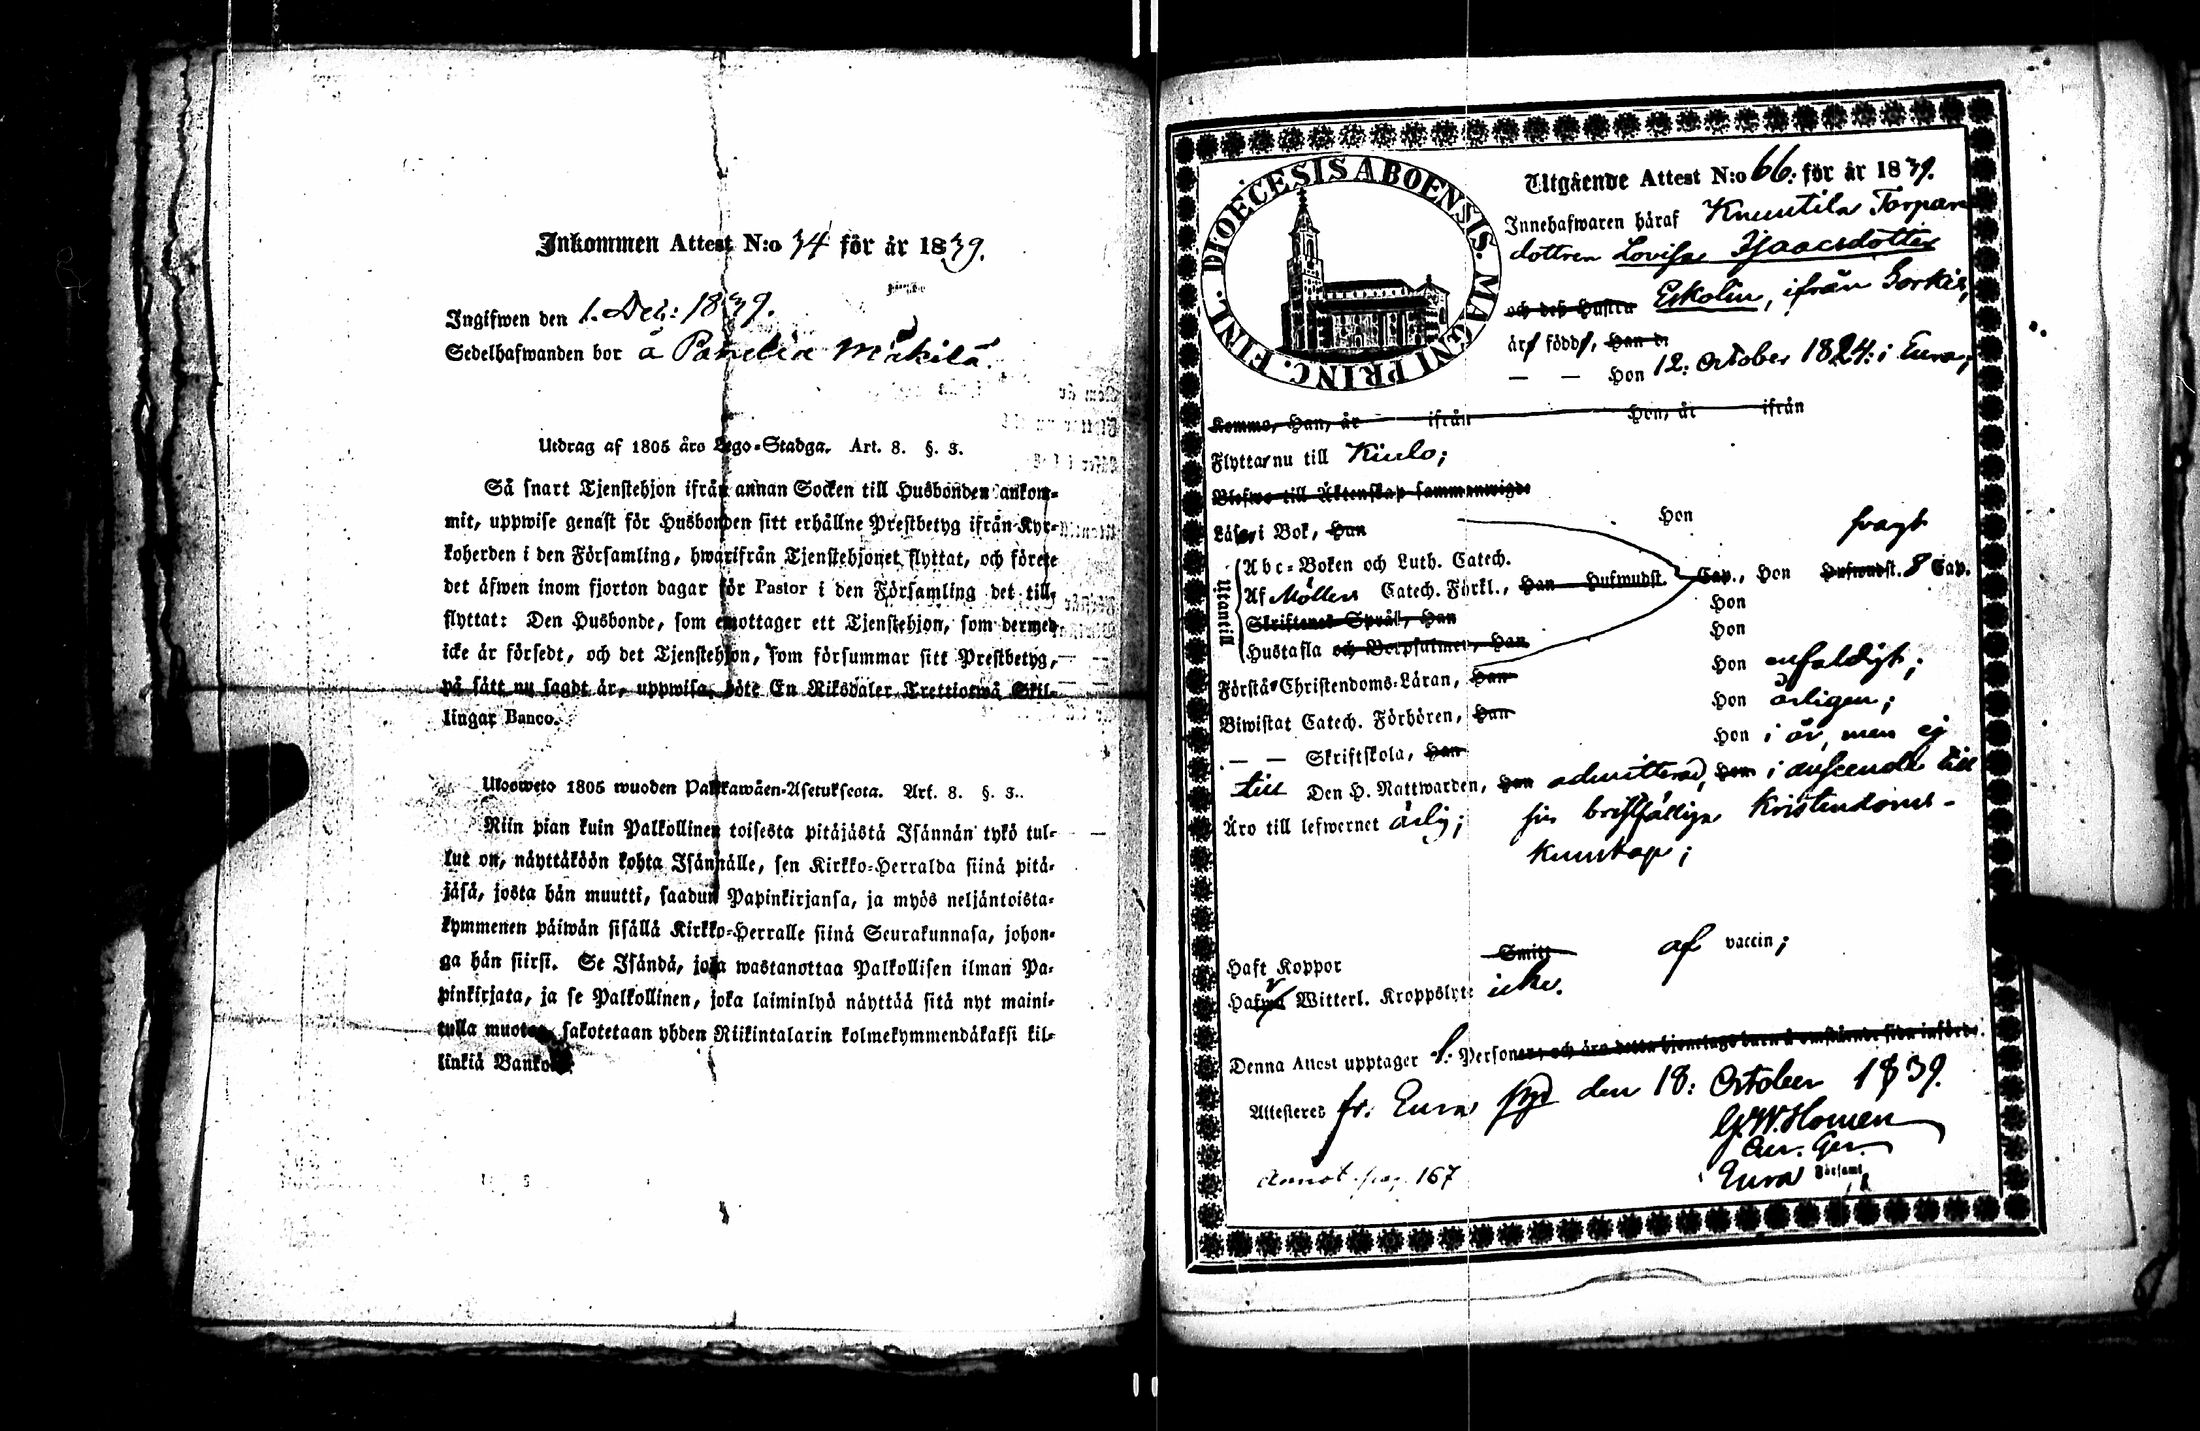 Inkommen Attest N:o 34 för år 1839.
Ingifwen den 1. Dec: 1839.
Sedelhafwanden bor å Panelia Mäkilä.
Utdrag af 1805 års Lego-Stadga. Art. 8. §. 3.
Så snart Tjenstehjon ifrån annan Socken till Husbonden ankom-
mit, uppwise genast för Husbonden sitt erhållne Prestbetyg ifrån Kyr-
koherden i den Församling, hwarifrån Tjenstehjonet flyttat, och förete
det äfwen inom fjorton dagar för Pastor i den Församling det till-
flyttat: Den Husbonde, som emottager ett Tjenstehjon, som dermed
icke är försedt, och det Tjenstehjon, som försummar sitt Prestbetyg,
på sätt nu sagdt är, uppwisa, böte En Riksdaler Trettiotwå Skil-
lingar Banco.
Ulosweto 1805 wuoden Palkkawäen-Asetuksesta. Art. 8. §. 3.
Niin pian kuin Palkollinen toisesta pitäjästä Isännän tykö tul-
lut on, näyttäköön kohta Isännälle, sen Kirkko-Herralda siinä pitä-
jäsä, josta hän muutti, saadun Papinkirjansa, ja myös neljäntoista-
kymmenen päiwän sisällä Kirkko-Herralle siinä Seurakunnasa, johon-
ga hän siirsi. Se Isändä, joka wastanottaa Palkollisen ilman Pa-
pinkirjata, ja se Palkollinen, joka laiminlyö näyttää sitä nyt maini-
tulla muotoa, sakotetaan yhden Riikintalarin kolmekymmendäkaksi kil-
linkiä Bankosa.
DIOECESIS ABOENSIS. MAGNI PRINC. FINL.
Utgående Attest N:o 66: för år 1839.
Innehafwaren häraf Knuutila Torpare
dottren Lovisa Isaacsdotter
och deß Hustru Eskolin, ifrån Sorkis,
är född, Han d.
— — Hon 12: October 1824: i Eura;
Kommo, Han, år ifrån Hon, år ifrån
Flyttar nu till Kiulo;
Blefwo till Äktenskap sammanwigde
Läser i Bok, Han Hon svagt
Utantill
Abc-Boken och Luth. Catech.
Af Möllers Catech. Förkl., Han Hufwudst. Cap., Hon Hufwudst. 8 Cap.
Skriftenes Språk, Han Hon
Hustafla och Botpsalmer, Han Hon
Förstår Christendoms-Läran, Han Hon enfaldigt;
Biwistat Catech. Förhören, Han Hon årligen;
— — Skriftskola, Han Hon i år, men ej
till Den H. Nattwarden, han admitterad, hon i anseende till
Äro till lefwernet ärlig; sin bristfällige Kristendoms-
kunskap;
Haft Koppor Smitt af vaccin;
Hafwa Witterl. Kroppslyte icke.
Denna Attest upptager 1: Personer, och äro detta hjonelags barn å omstående sida införde.
Attesteras fr. Eura den 18: October 1839.
G. W. Homen
Eura Församl.
Annot. pag. 167